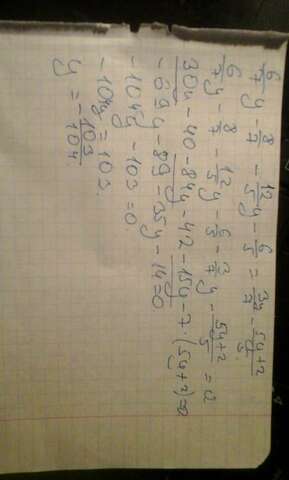 6/7 y - 8/7 - 12/5 y - 6/5 = 3y/7 - (5y+2)/5
6/7 y - 8/7 - 12/5 y - 6/5 - 3/7 y - (5y+2)/5 = 0
30y - 40 - 84y - 42 - 15y - 7·(5y+2)=0
- 69y - 89 - 35y - 14=0
- 104y - 103 = 0
- 104y = 103.
y = - 103/104.